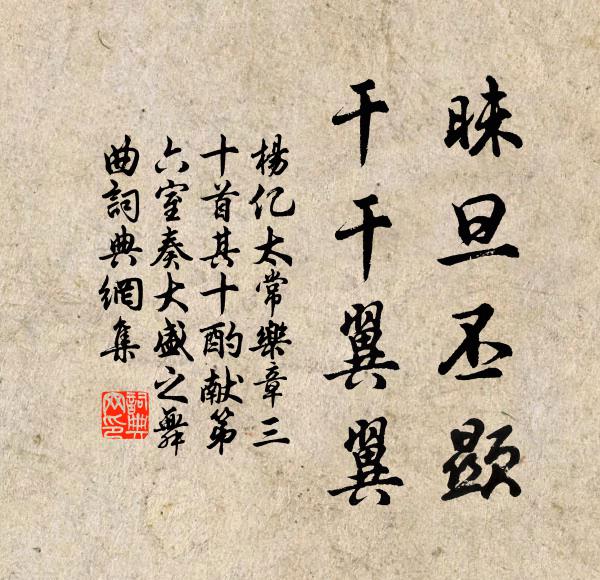 昧旦丕顯
干干翼翼
楊亿太常樂章三
十首其十酌献第
六室奏大盛之舞
曲詞典網集
詞典
网印